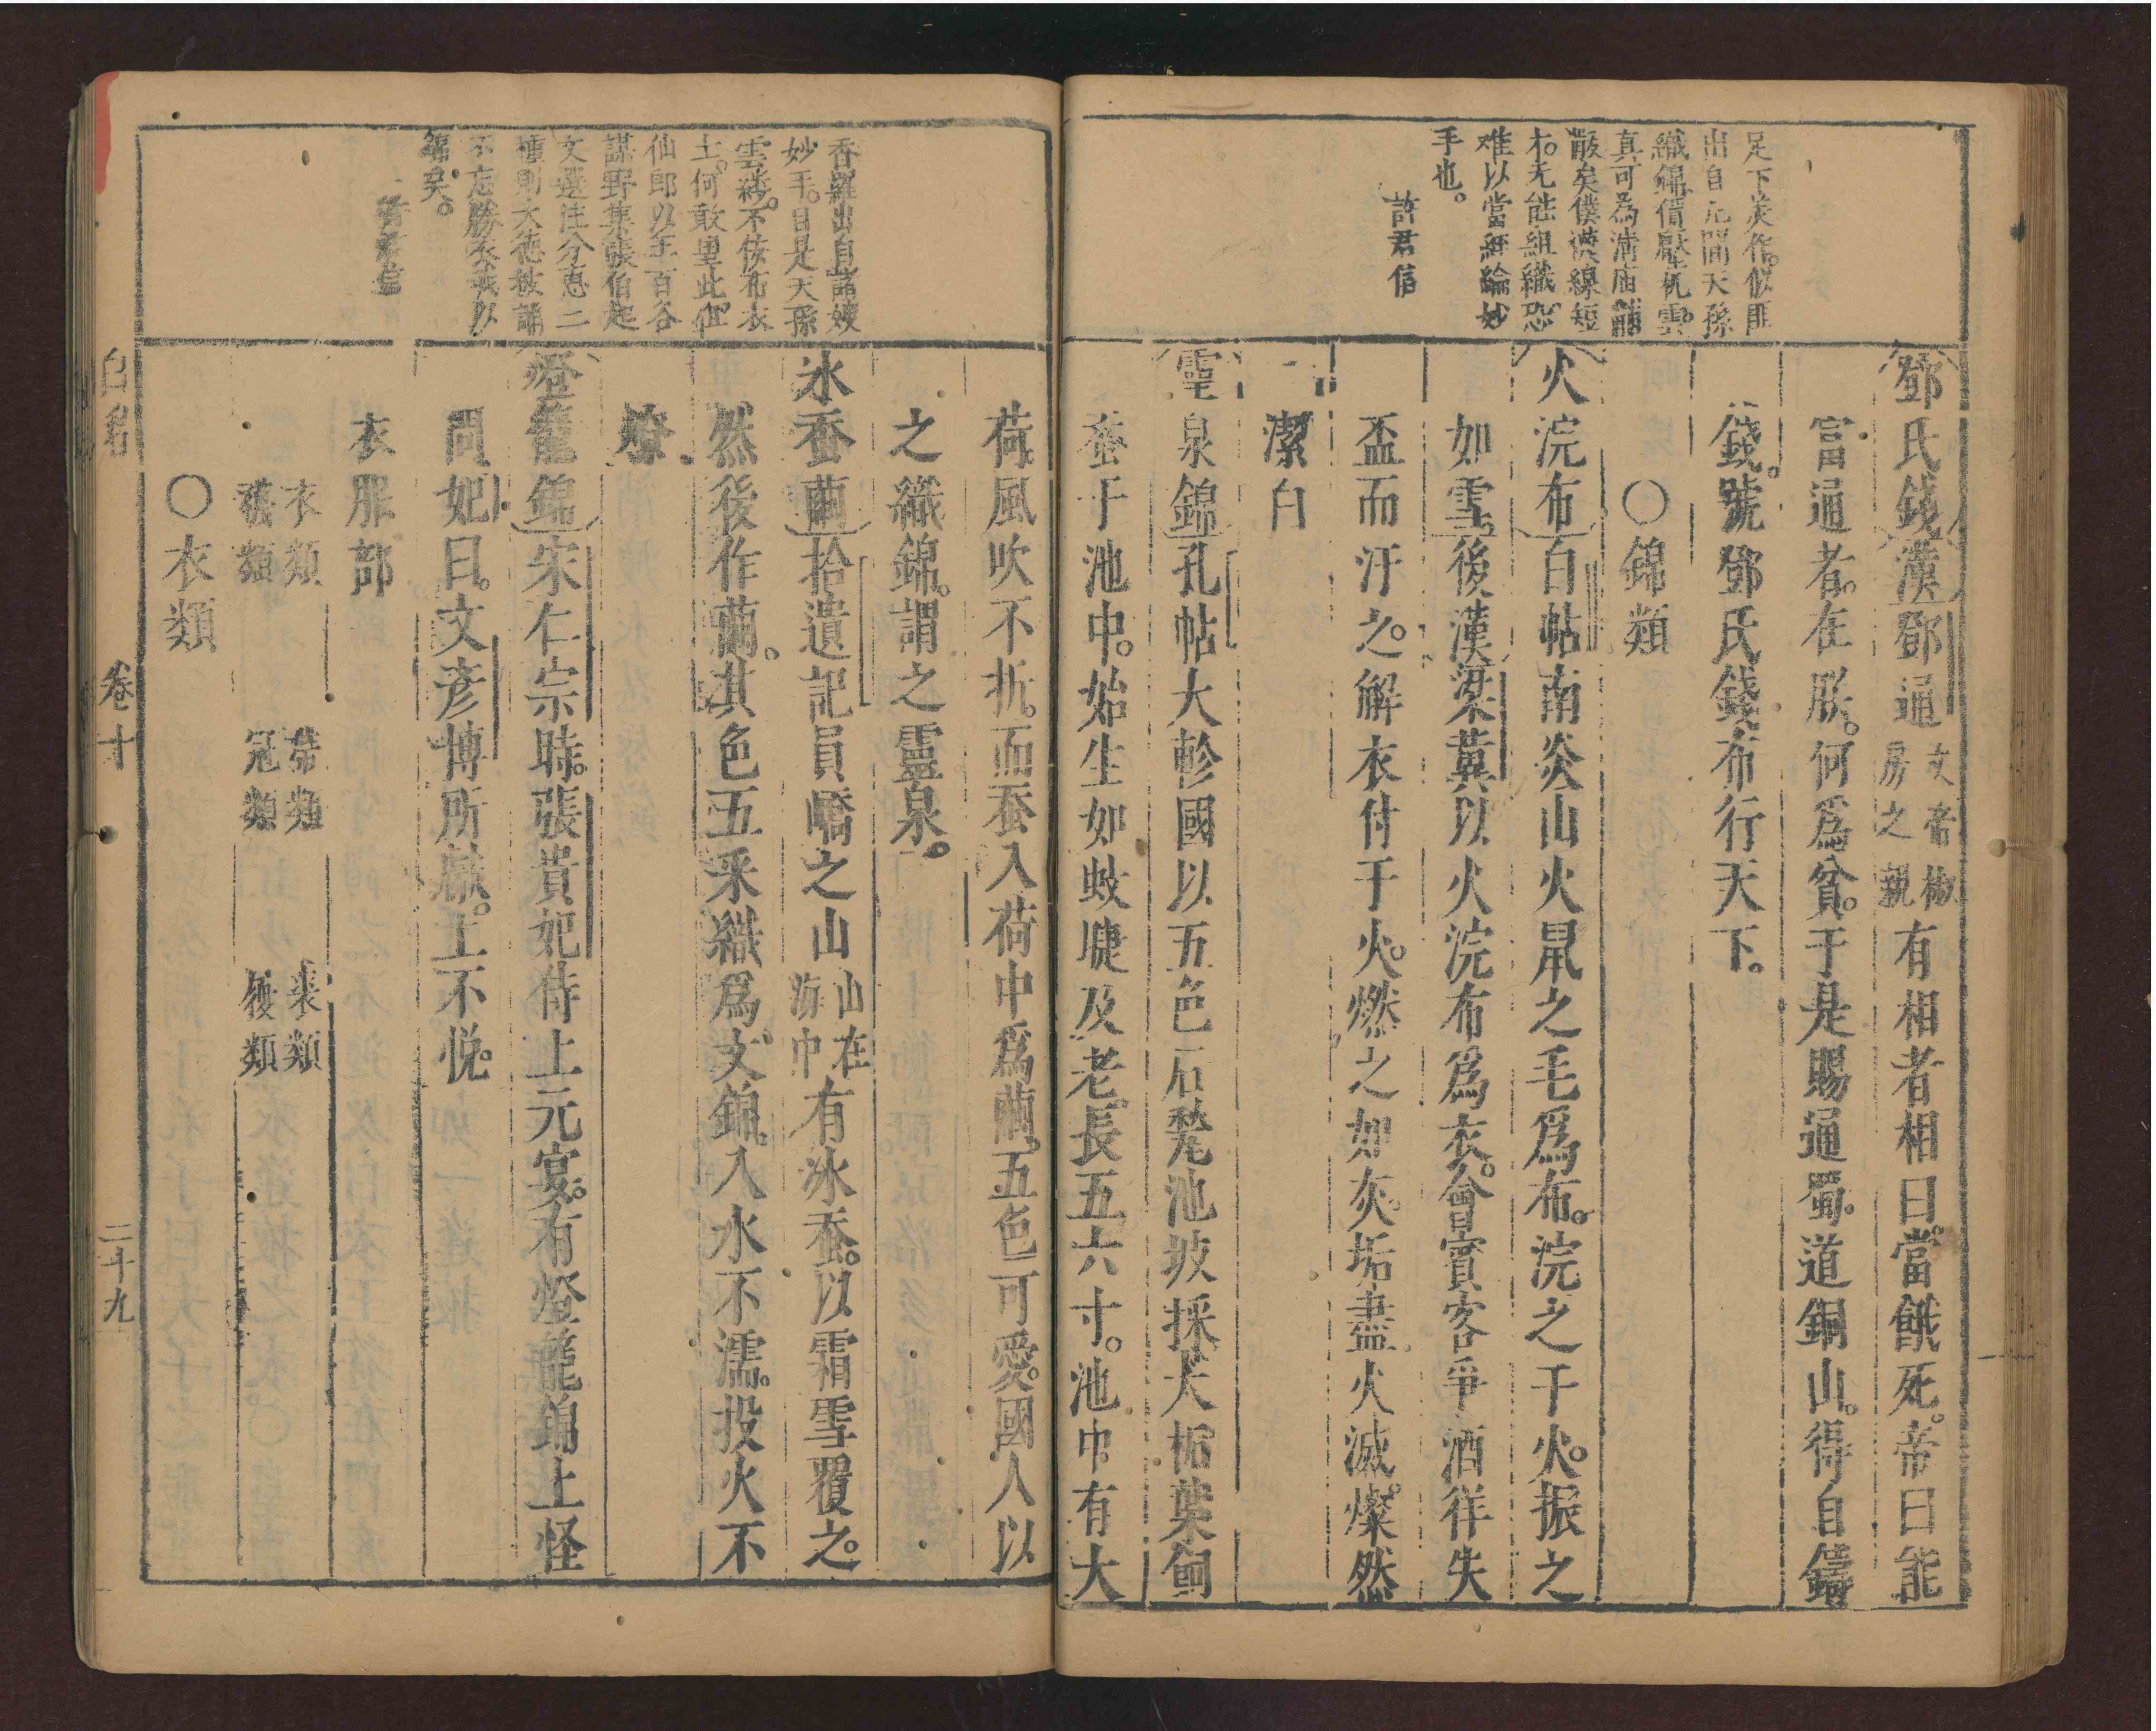 足下炭作。似匪
出自元間天孫
織錦。價壓杭雲。
真可為清庙黼
黻矣。僕襪線短
才。无能組織。恐
难以當經綸妙
手也。
許君信
鄧氏錢漢鄧通文帝椒房之親有相者相曰。當餓死。帝曰能
富通者。在朕。何爲貧。于是賜通蜀道銅山。得自鑄
錢。號鄧氏錢布行天下。
〇錦類
火浣布白帖南炎山火鼠之毛爲布。浣之于火。振之
如雪。後漢梁冀以火浣布爲衣。會賓客爭酒佯失
盃而汙之。解衣付于火。燃之如灰。垢盡火滅。燦然
潔白
靈泉錦孔帖大軫國以五色石甃池坡採大柘葉飼
蚕于池中。始生如蚊睫及老長五六寸。池中有大
香羅出自諸嫂
妙手。自是天孫
雲裳。不侫布衣
士。何敢望此。但
仙郎以王百谷
謀野集張伯起
文選注分惠二
種則大德披誦
不忘勝衣我以
錦矣。
荷。風吹不折。而蚕入荷中爲繭。五色可愛。國人以
之織錦。謂之靈泉。
氷蚕繭拾遺記員嶠之山山在海中有氷蚕。以霜雪覆之。
然後作繭。其色五采織爲文錦。入水不濡。投火不
燎。
燈籠錦宋仁宗時。張貴妃侍上元宴。有燈籠錦上怪
問。妃曰。文彦博所献。上不悅。
衣服部
衣類 帶類 裘類
襪類 冠類 履類
〇衣類
卷十
二十九